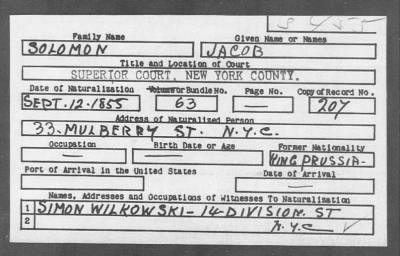 Family Name Given Name or Names
SOLOMON JACOB
Title and Location of Court
SUPERIOR COURT, NEW YORK COUNTY.
Date of Naturalization Volume or Bundle No. Page No. Copy of Record No.
SEPT. 12-1855 63 — 207
Address of Naturalized Person
33-MULBERRY ST. N.Y.C.
Occupation Birth Date or Age Former Nationality
— — KING PRUSSIA-
Port of Arrival in the United States Date of Arrival
— —
Names, Addresses and Occupations of Witnesses To Naturalization
1 SIMON WILKOWSKI-14-DIVISION. ST
2 N.Y.C